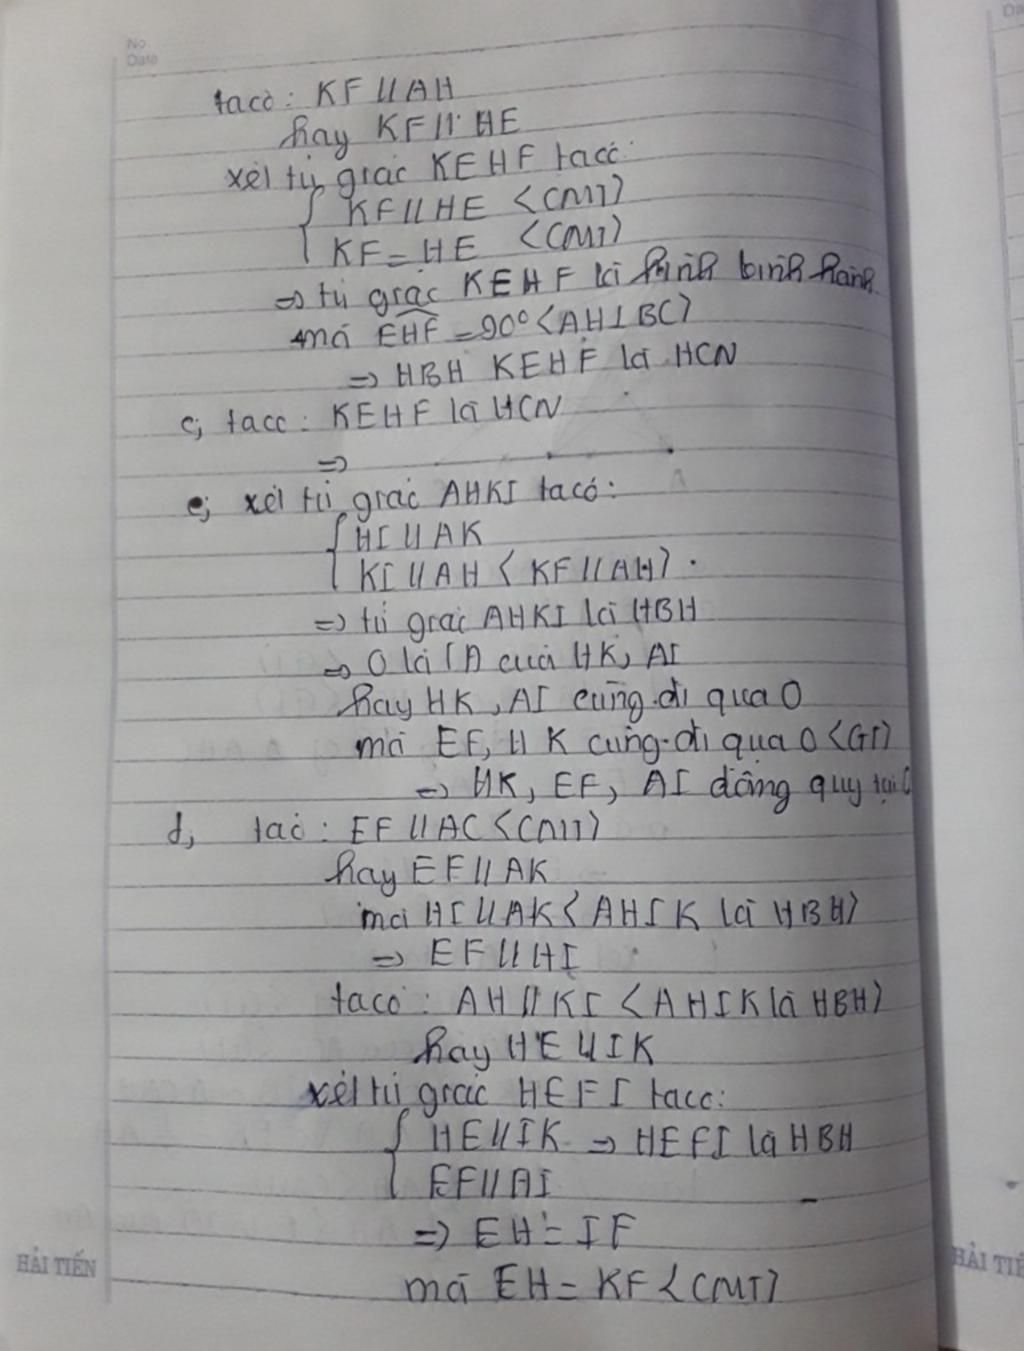 No.
Date
ta có: KF // AH
hay KF // HE
xét tứ giác KEHF ta có:
KF // HE <CMT>
KF = HE <CMT>
=> tứ giác KEHF là hình bình hành
mà EHF = 90° <AH ⊥ BC>
=> HBH KEHF là HCN
c; ta có: KEHF là HCN
=>
e; xét tứ giác AHKI ta có:
HI // AK
KI // AH < KF // AH> .
=> tứ giác AHKI là HBH
=> O là TĐ của HK, AI
hay HK, AI cùng đi qua O
mà EF, HK cùng đi qua O <GT>
=> HK, EF, AI đồng quy tại O
d, ta có: EF // AC <CMT>
hay EF // AK
mà HI // AK < AHIK là HBH>
=> EF // HI
ta có: AH // KI < AHIK là HBH>
hay HE // IK
xét tứ giác HEFI ta có:
HE // IK => HEFI là HBH
EF // AI
=> EH = IF
mà EH = KF <CMT>
HẢI TIẾN